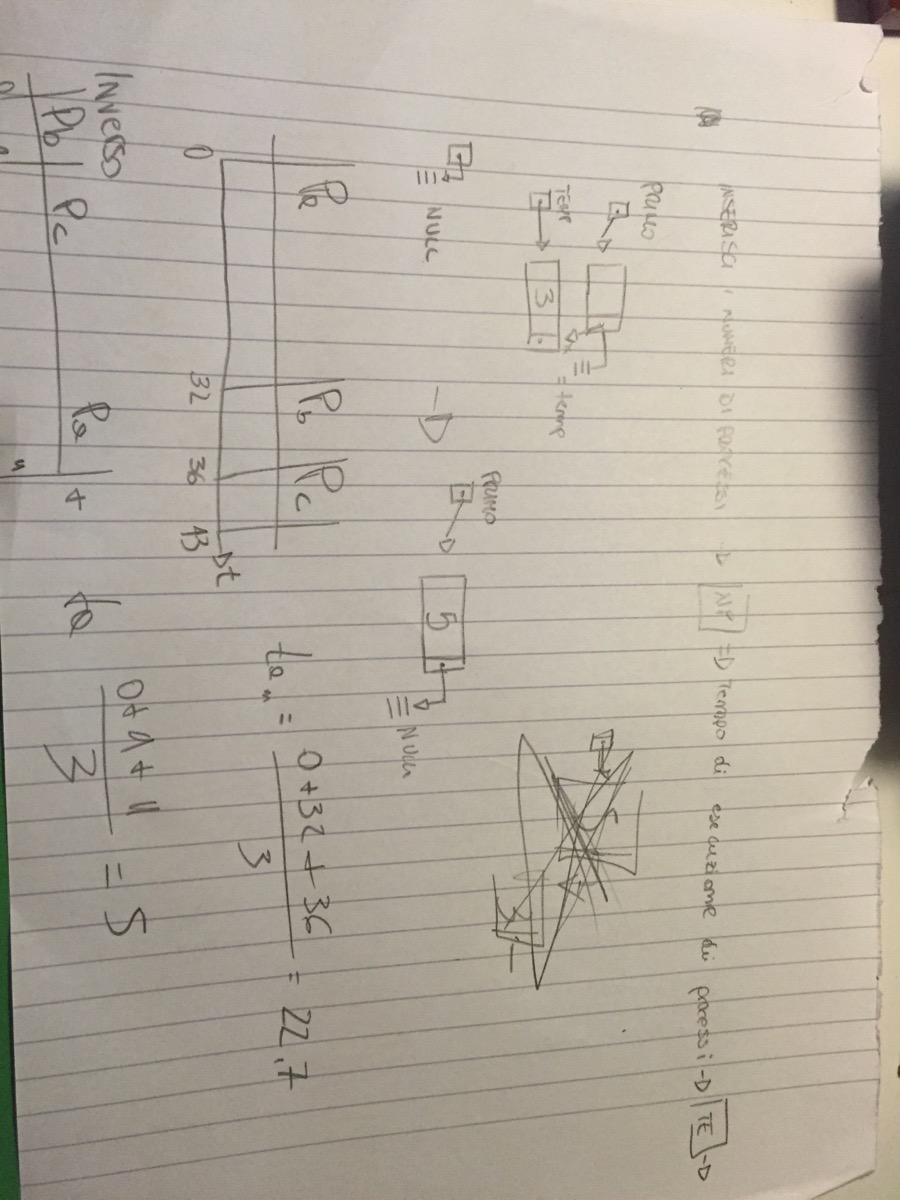 INSERISCI I NUMERI DI PROCESSI → NP ⇒ Tempo di esecuzione di processi → TE →
PRIMO
TEMP
3
= temp
PRIMO
NULL
5
NULL
Pa Pb Pc
0 32 36 43 t
ta = 0+32+36 / 3 = 22,7
INVERSO
Pb Pc Pa
t
ta 0+4+11 / 3 = 5